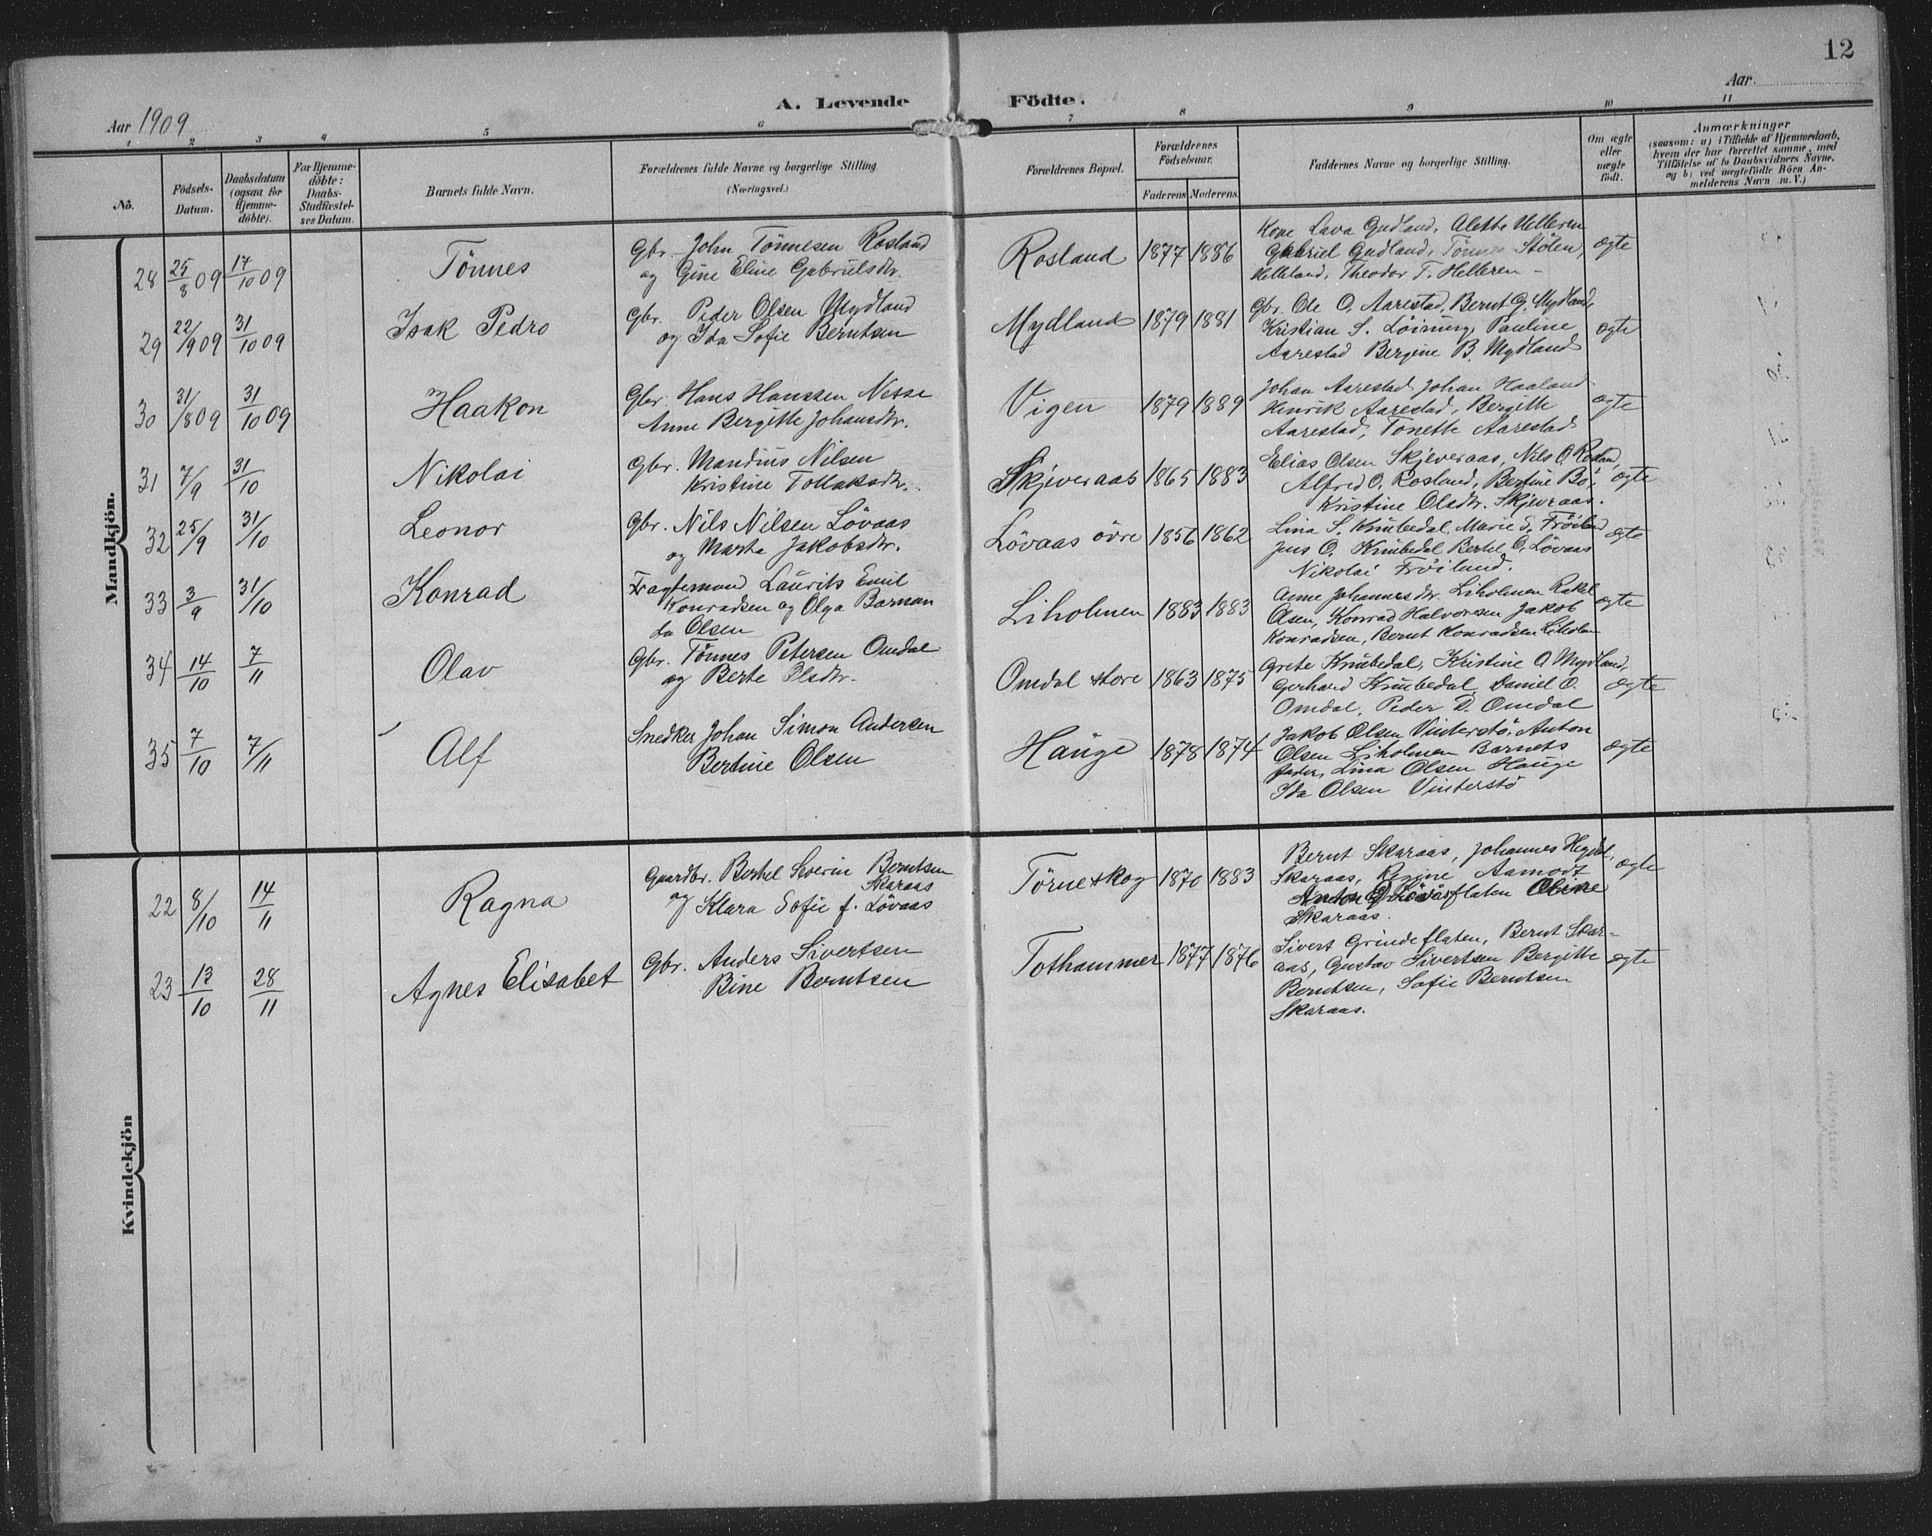 12
Aar 1909
A. Levende Födte.
Aar
1 2 3 4 5 6 7 8 9 10 11
Nö.
Födsels-Datum.
Daabsdatum (ogsaa for Hjemmedöbte).
For Hjemmedöbte: Daabs-Stadfæstelses Datum.
Barnets fulde Navn.
Forældrenes fulde Navne og borgerlige Stilling (Næringsvei.)
Forældrenes Bopæl.
Forældrenes Födselsaar.
Faderens Moderens
Faddernes Navne og borgerlige Stilling.
Om ægte eller uægte födt.
Anmærkninger
(saasom: a) i Tilfælde af Hjemmedaab, hvem der har forrettet samme, med Tilföielse af to Daabsvidners Navne, og b) ved uægtefödte Börn Anmelderens Navn m. V.)
Mandkjön.
28 25/8 09 17/10 09 Tönnes
Gbr. John Tönnesen Rosland
og Gine Eline Gabrielsdtr.
Rosland 1877 1886
Kone Lava Gudland, Alette Helleren
Gabriel Gudland, Stölen,
Helleland, Theodor T. Helleren
ægte
29 22/9 09 31/10 09 Isak Pedro
Gbr. Peder Olsen Mydland
og Ida Sofie Berntsen
Mydland 1879 1881
Gbr. Ole O. Aarestad, Bernt G. Mydland
Kristian S. Löining, Pauline
Aarestad Bergine B. Mydland
ægte
30 31/8 09 31/10 09 Haakon
Gbr. Hans Hanssen Nesse
Anne Bergitte Johansdtr.
Vigen 1879 1889
Johan Aarestad Johan Haaland
Henrik Aarestad, Bergitte
Aarestad, Tonette Aarestad
ægte
31 7/9 31/10 Nikolai
Gbr. Mandius Nilsen
Kristine Tollaksdtr.
Skjeveraas 1865 1883
Elias Olsen Skjeveraas, Nils O. Rosland,
Alfred O. Rosland, Bertine Bö,
Kristine Olsdtr. Skjevraas.
ægte
32 25/9 31/10 Leonor
Gbr. Nils Nilsen Lövaas
og Marta Jakobsdtr.
Lövaas övre 1856 1862
Lina S. Knubedal, Marie S. Fröiland
Jens O. Knubedal Bertel O. Lövaas
Nikolai Fröiland.
ægte
33 3/9 31/10 Konrad
Fragtemand Laurits Emil
Konradsen og Olga Barnan
da Olsen
Liholmen 1883 1883
Anne Johannesdtr. Liholmen Rakel
Olsen, Konrad Halvorsen Jakob
Konradsen, Bernt Konradsen Liholm
ægte
34 14/10 7/11 Olav
Gbr. Tönnes Petersen Omdal
og Berte Elsdtr.
Omdal store 1863 1875
Grete Knubedal, Kristine O Mydland,
Gerhard Knubedal, Daniel O.
Omdal, Peder D. Omdal
ægte
35 7/10 7/11 Alf
Snedker Johan Simon Andersen
Bertine Olsen
Hauge 1878 1874
Jakob Olsen Vinterstö, Anton
Olsen Liholmen Barnets
fader, Lina Olsen Hauge
Ida Olsen Vinterstö
ægte
Kvindekjön
22 8/10 14/11 Ragna
Gaardbr. Bertel Severin Berntsen
Skaraas
og Klara Sofie f. Lövaas
Törneskog 1870 1883
Bernt Skaraas, Johannes Hegdal,
Skaraas, Regine Aamodt
Skaraas.
ægte
23 13/10 28/11 Agnes Elisabet
Gbr. Anders Sivertsen
Bine Berntsen
Tothammer 1877 1876
Sivert Grindeflaten, Bernt Skar-
aas, Gustav Sivertsen Bergitte
Berntsen, Sofie Berntsen
Skaraas.
ægte